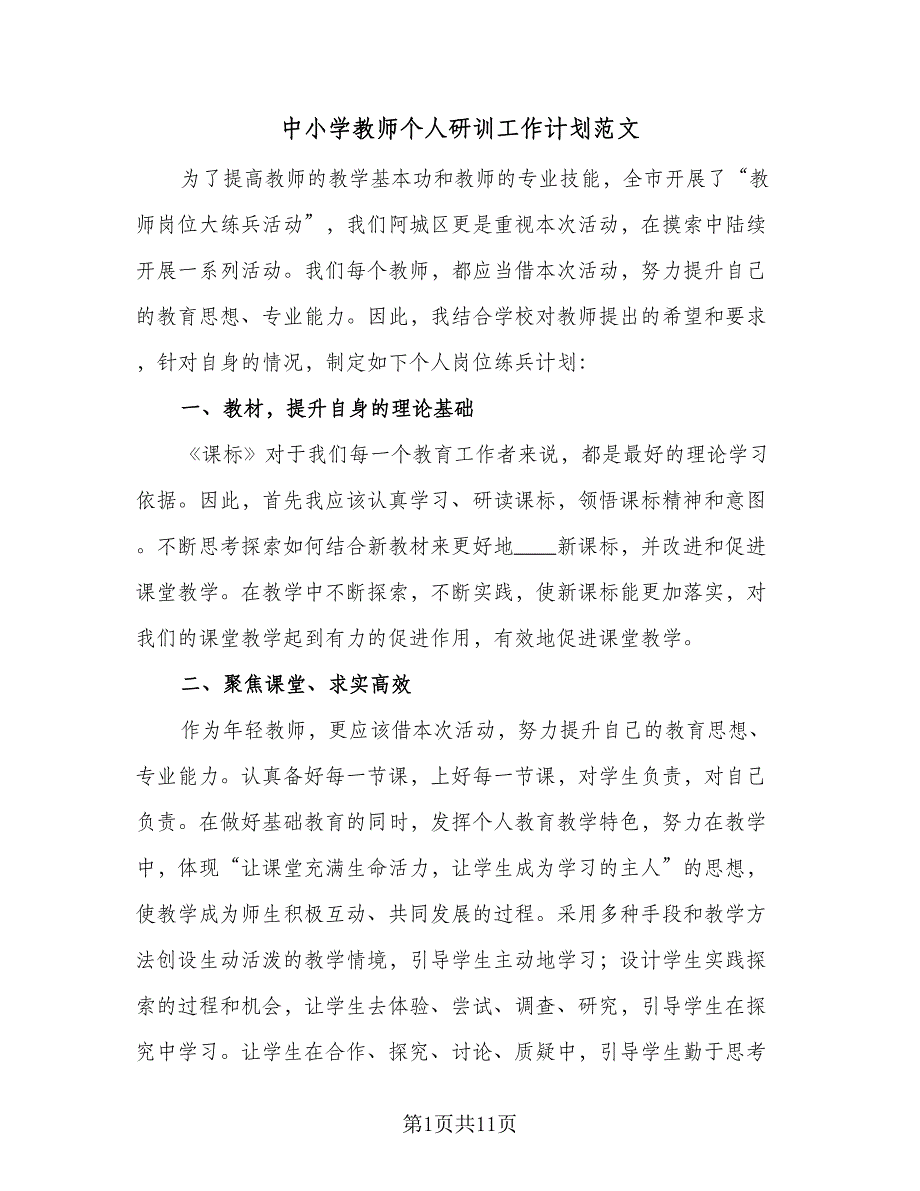 中小学教师个人研训工作计划范文
为了提高教师的教学基本功和教师的专业技能，全市开展了“教
师岗位大练兵活动”，我们阿城区更是重视本次活动，在摸索中陆续
开展一系列活动。我们每个教师，都应当借本次活动，努力提升自己
的教育思想、专业能力。因此，我结合学校对教师提出的希望和要求
，针对自身的情况，制定如下个人岗位练兵计划：
一、教材，提升自身的理论基础
《课标》对于我们每一个教育工作者来说，都是最好的理论学习
依据。因此，首先我应该认真学习、研读课标，领悟课标精神和意图
。不断思考探索如何结合新教材来更好地____新课标，并改进和促进
课堂教学。在教学中不断探索，不断实践，使新课标能更加落实，对
我们的课堂教学起到有力的促进作用，有效地促进课堂教学。
二、聚焦课堂、求实高效
作为年轻教师，更应该借本次活动，努力提升自己的教育思想、
专业能力。认真备好每一节课，上好每一节课，对学生负责，对自己
负责。在做好基础教育的同时，发挥个人教育教学特色，努力在教学
中，体现“让课堂充满生命活力，让学生成为学习的主人”的思想，
使教学成为师生积极互动、共同发展的过程。采用多种手段和教学方
法创设生动活泼的教学情境，引导学生主动地学习；设计学生实践探
索的过程和机会，让学生去体验、尝试、调查、研究，引导学生在探
究中学习。让学生在合作、探究、讨论、质疑中，引导学生勤于思考
第1页共11页